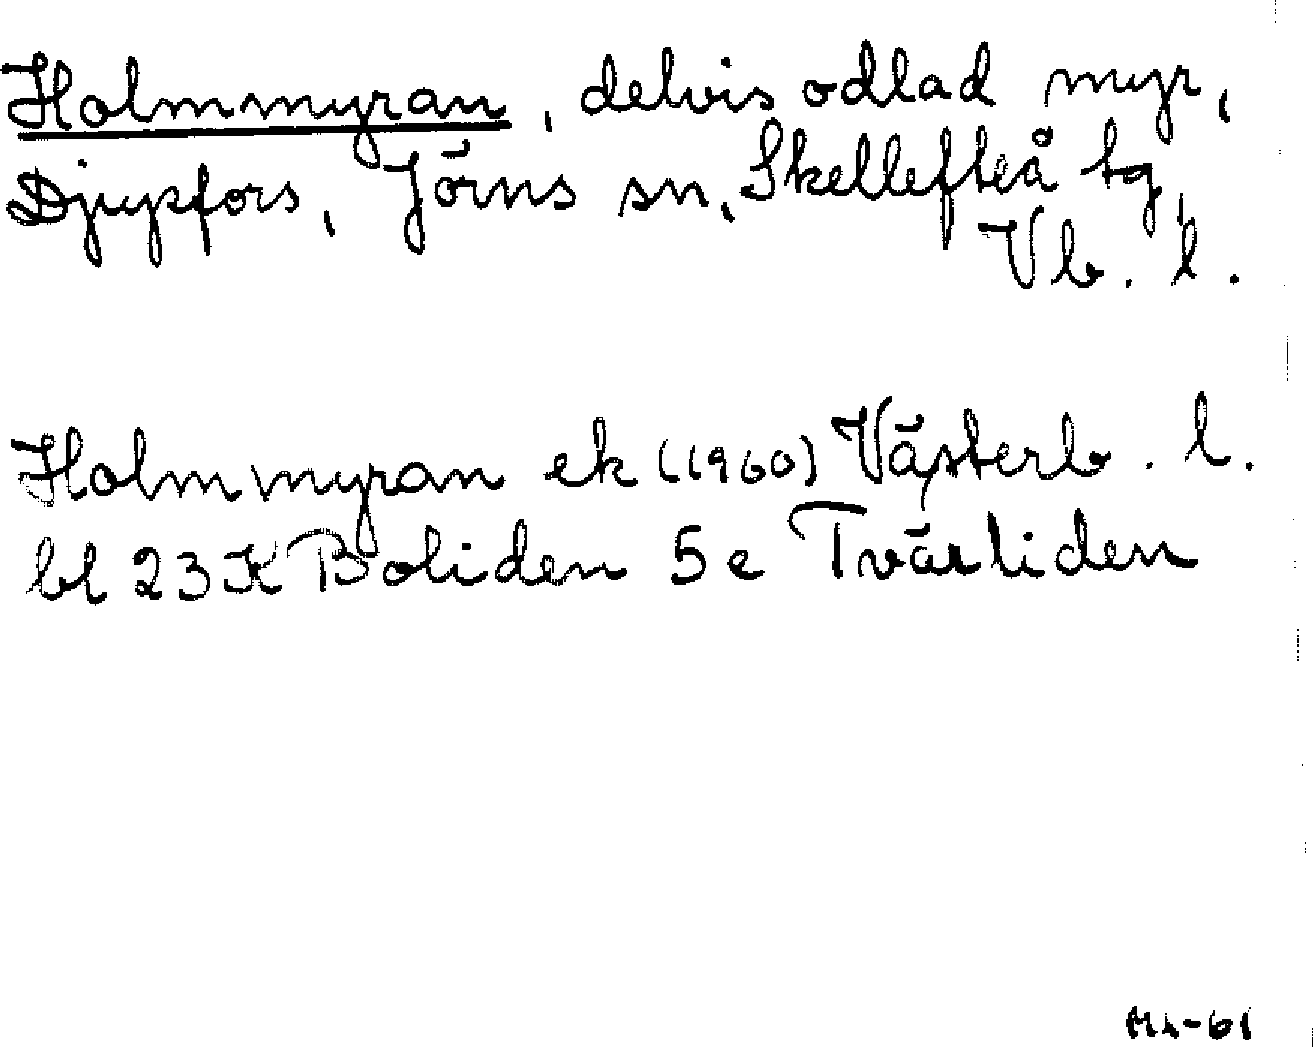 Holmmyran, delvis odlad myr,
Djupfors, Jörns sn, Skellefteå tg,
Vb. l.
Holmmyran ek (1960) Västerb. l.
bl 23K Boliden 5e Tvärliden